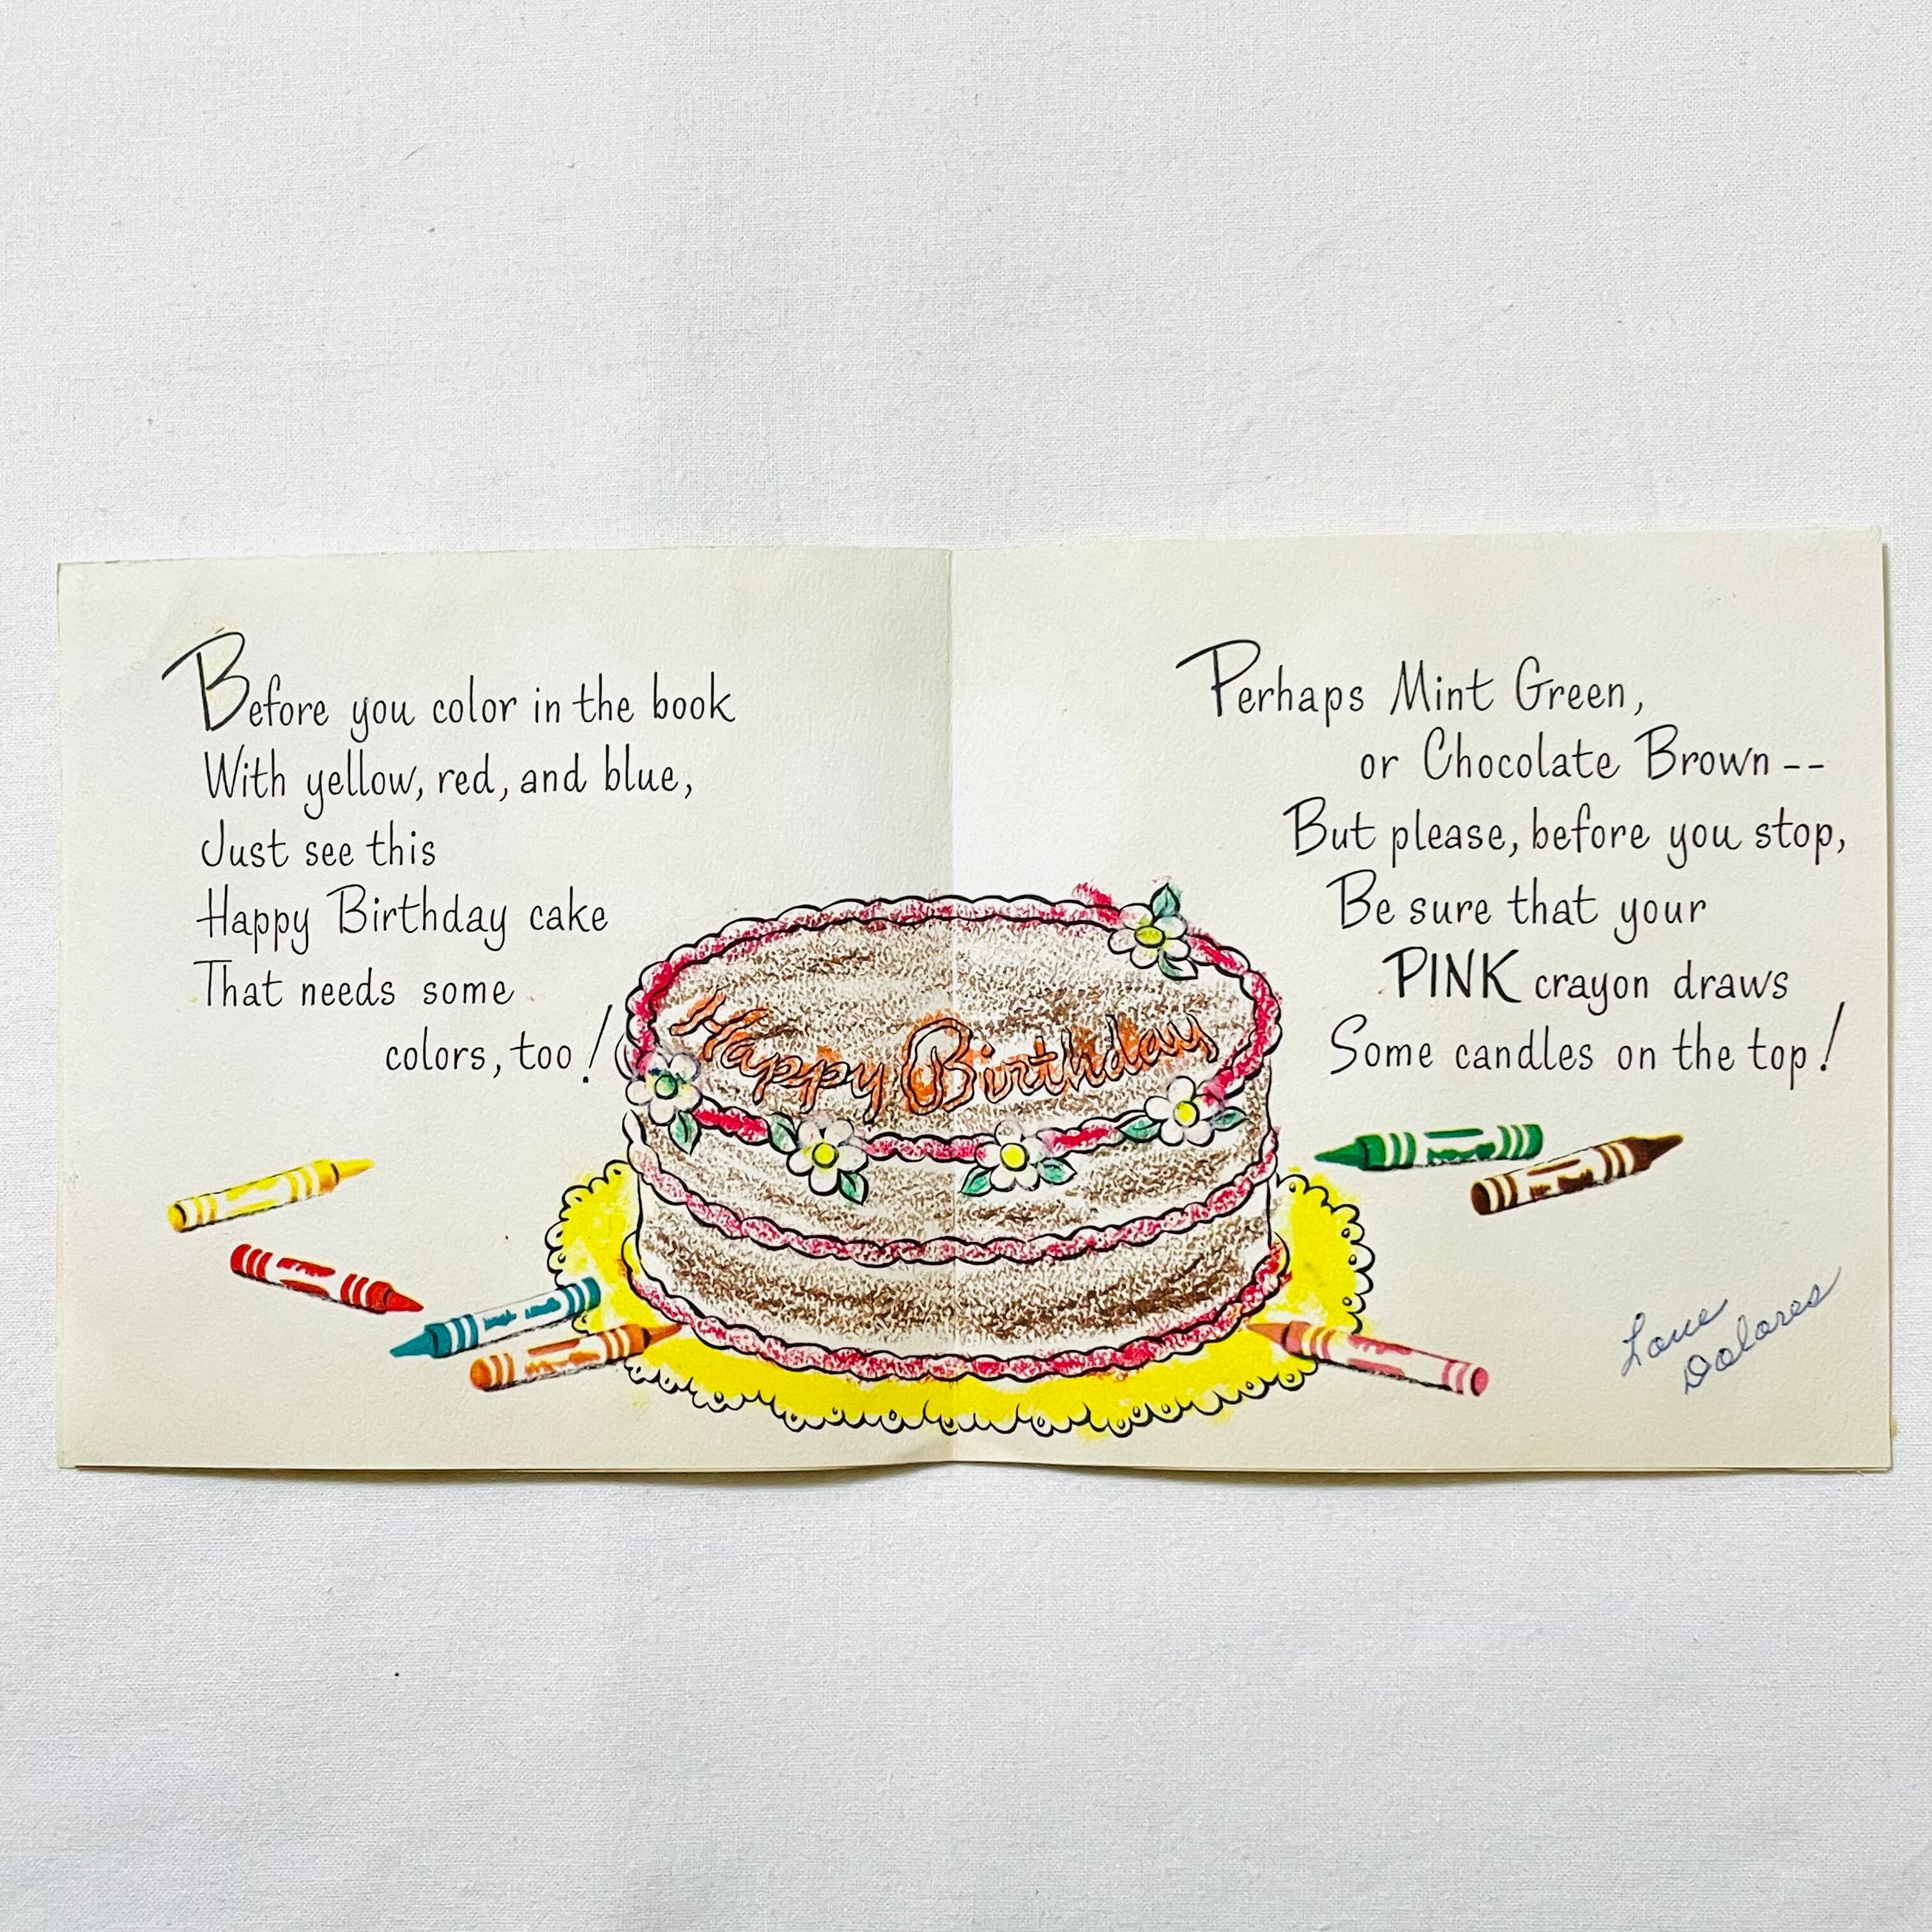 Before you color in the book
With yellow, red, and blue,
Just see this
Happy Birthday cake
That needs some
colors, too!
Happy Birthday
Perhaps Mint Green,
or Chocolate Brown --
But please, before you stop,
Be sure that your
PINK crayon draws
Some candles on the top!
Love
Dolores